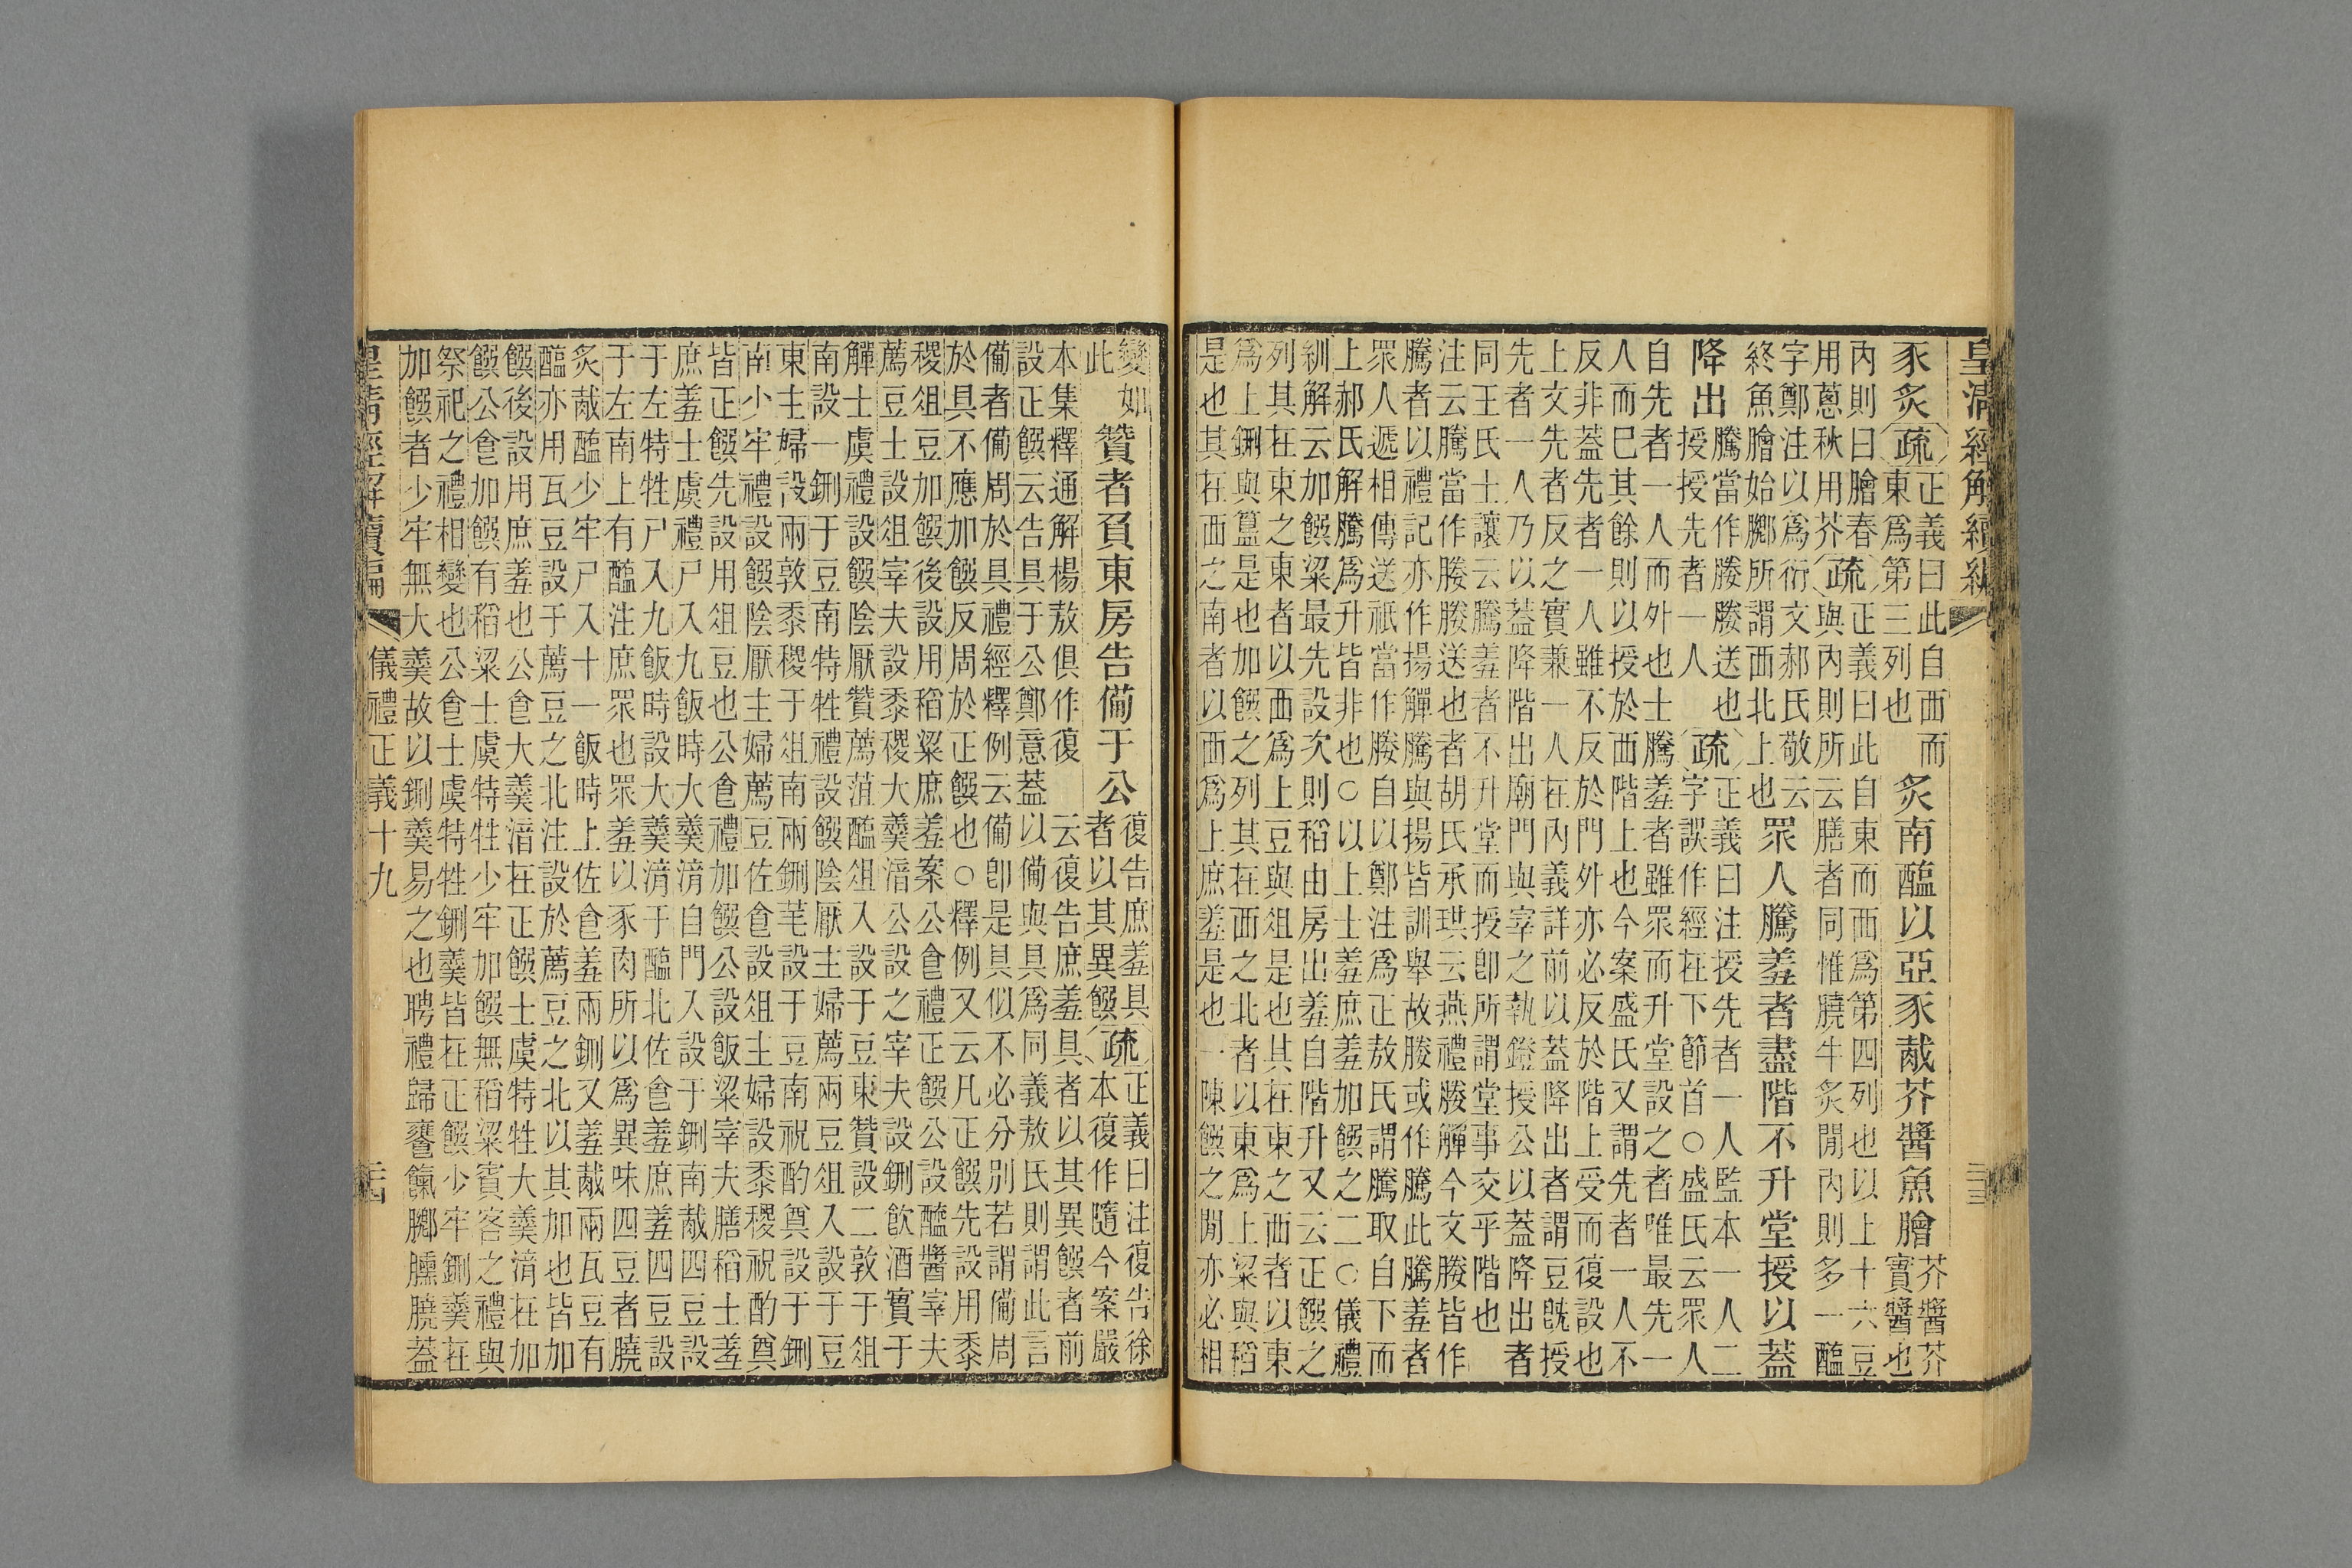 皇清經解續編
豕炙疏正義曰此自西而
東爲第三列也
炙南醢以亞豕胾芥醬魚膾芥醬芥
實醬也
內則曰膾春
用蔥秋用芥疏正義曰此自東而西爲第四列也以上十六豆
與內則所云膳者同惟膮牛炙閒內則多一醢
字鄭注以爲衍文郝氏敬云
終魚膾始膷所謂西北上也衆人騰羞者盡階不升堂授以蓋
降出騰當作媵媵送也
授授先者一人疏正義曰注授先者一人監本一人二
字誤作經在下節首○盛氏云衆人
自先者一人而外也士騰羞者雖衆而升堂設之者唯最先一
人而巳其餘則以授於西階上也今案盛氏又謂先者一人不
反非蓋先者一人雖不反於門外亦必反於階上受而復設也
上文先者反之實兼一人在內義詳前以蓋降出者謂豆旣授
先者一人乃以蓋降階出廟門與宰之執鐙授公以蓋降出者
同王氏士讓云騰羞者不升堂而授卽所謂堂事交乎階也
注云騰當作媵媵送也者胡氏承珙云燕禮媵觶今文媵皆作
騰者以禮記亦作揚觶騰與揚皆訓舉故媵或作騰此騰羞者
衆人遞相傳送祇當作媵自以鄭注爲正敖氏謂騰取自下而
上郝氏解騰爲升皆非也○以上士羞庶羞加饌之二○儀禮
紃解云加饌粱最先設次則稻由房出羞自階升又云正饌之
列其在東之東者以西爲上豆與俎是也其在東之西者以東
爲上鉶與簋是也加饌之列其在西之北者以東爲上粱與稻
是也其在西之南者以西爲上庶羞是也一陳饌之閒亦必相
變如
此贊者負東房告備于公復告庶羞具
者以其異饌疏正義曰注復告徐
本集釋通解楊敖俱作復云復告庶羞具者以其異饌者前
設正饌云告具于公鄭意蓋以備與具爲同義敖氏則謂此言
備者備周於具禮經釋例云備卽是具似不必分別若謂備周
於具不應加饌反周於正饌也○釋例又云凡正饌先設用黍
稷俎豆加饌後設用稻粱庶羞案公食禮正饌公設醯醬宰夫
薦豆士設俎宰夫設黍稷大羹湆公設之宰夫設鉶飲酒實于
觶士虞禮設饌陰厭贊薦菹醢俎入設于豆東贊設二敦于俎
南設一鉶于豆南特牲禮設饌陰厭主婦薦兩豆俎入設于豆
東主婦設兩敦黍稷于俎南兩鉶芼設于豆南祝酌奠設于鉶
南少牢禮設饌陰厭主婦薦豆佐食設俎主婦設黍稷祝酌奠
皆正饌先設用俎豆也公食禮加饌公設飯粱宰夫膳稻士羞
庶羞士虞禮尸入九飯時大羹湆自門入設于鉶南胾四豆設
于左特牲尸入九飯時設大羹湆于醢北佐食羞庶羞四豆設
于左南上有醢注庶衆也衆羞以豕肉所以爲異味四豆者膮
炙胾醢少牢尸入十一飯時上佐食羞兩鉶又羞胾兩瓦豆有
醢亦用瓦豆設于薦豆之北注設於薦豆之北以其加也皆加
饌後設用庶羞也公食大羹湆在正饌士虞特牲大羹湆在加
饌公食加饌有稻粱士虞特牲少牢加饌無稻粱賓客之禮與
祭祀之禮相變也公食士虞特牲鉶羹皆在正饌少牢鉶羹在
加饌者少牢無大羹故以鉶羹易之也聘禮歸饔餼膷臐膮蓋
皇清經解續編 儀禮正義十九